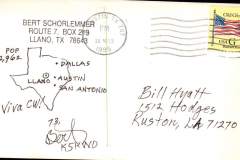 BERT SCHORLEMMER
ROUTE 7, BOX 289
LLANO, TX 78643
POP
2,962
DALLAS
LLANO
AUSTIN
SAN ANTONIO
Viva CW!
73,
Bert
Bill Hyatt
1512 Hodges
Ruston, LA 71270